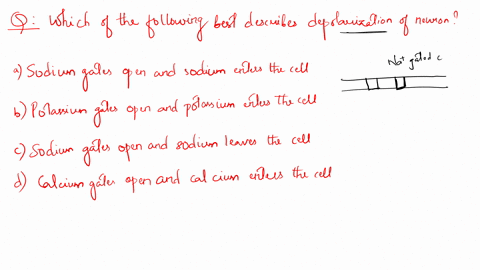 Q: Which of the following best describes depolarization of neuron?
a) Sodium gates open and sodium enters the cell
b) Potassium gates open and potassium enters the cell
c) Sodium gates open and sodium leaves the cell
d) Calcium gates open and calcium enters the cell
Na+ gated c